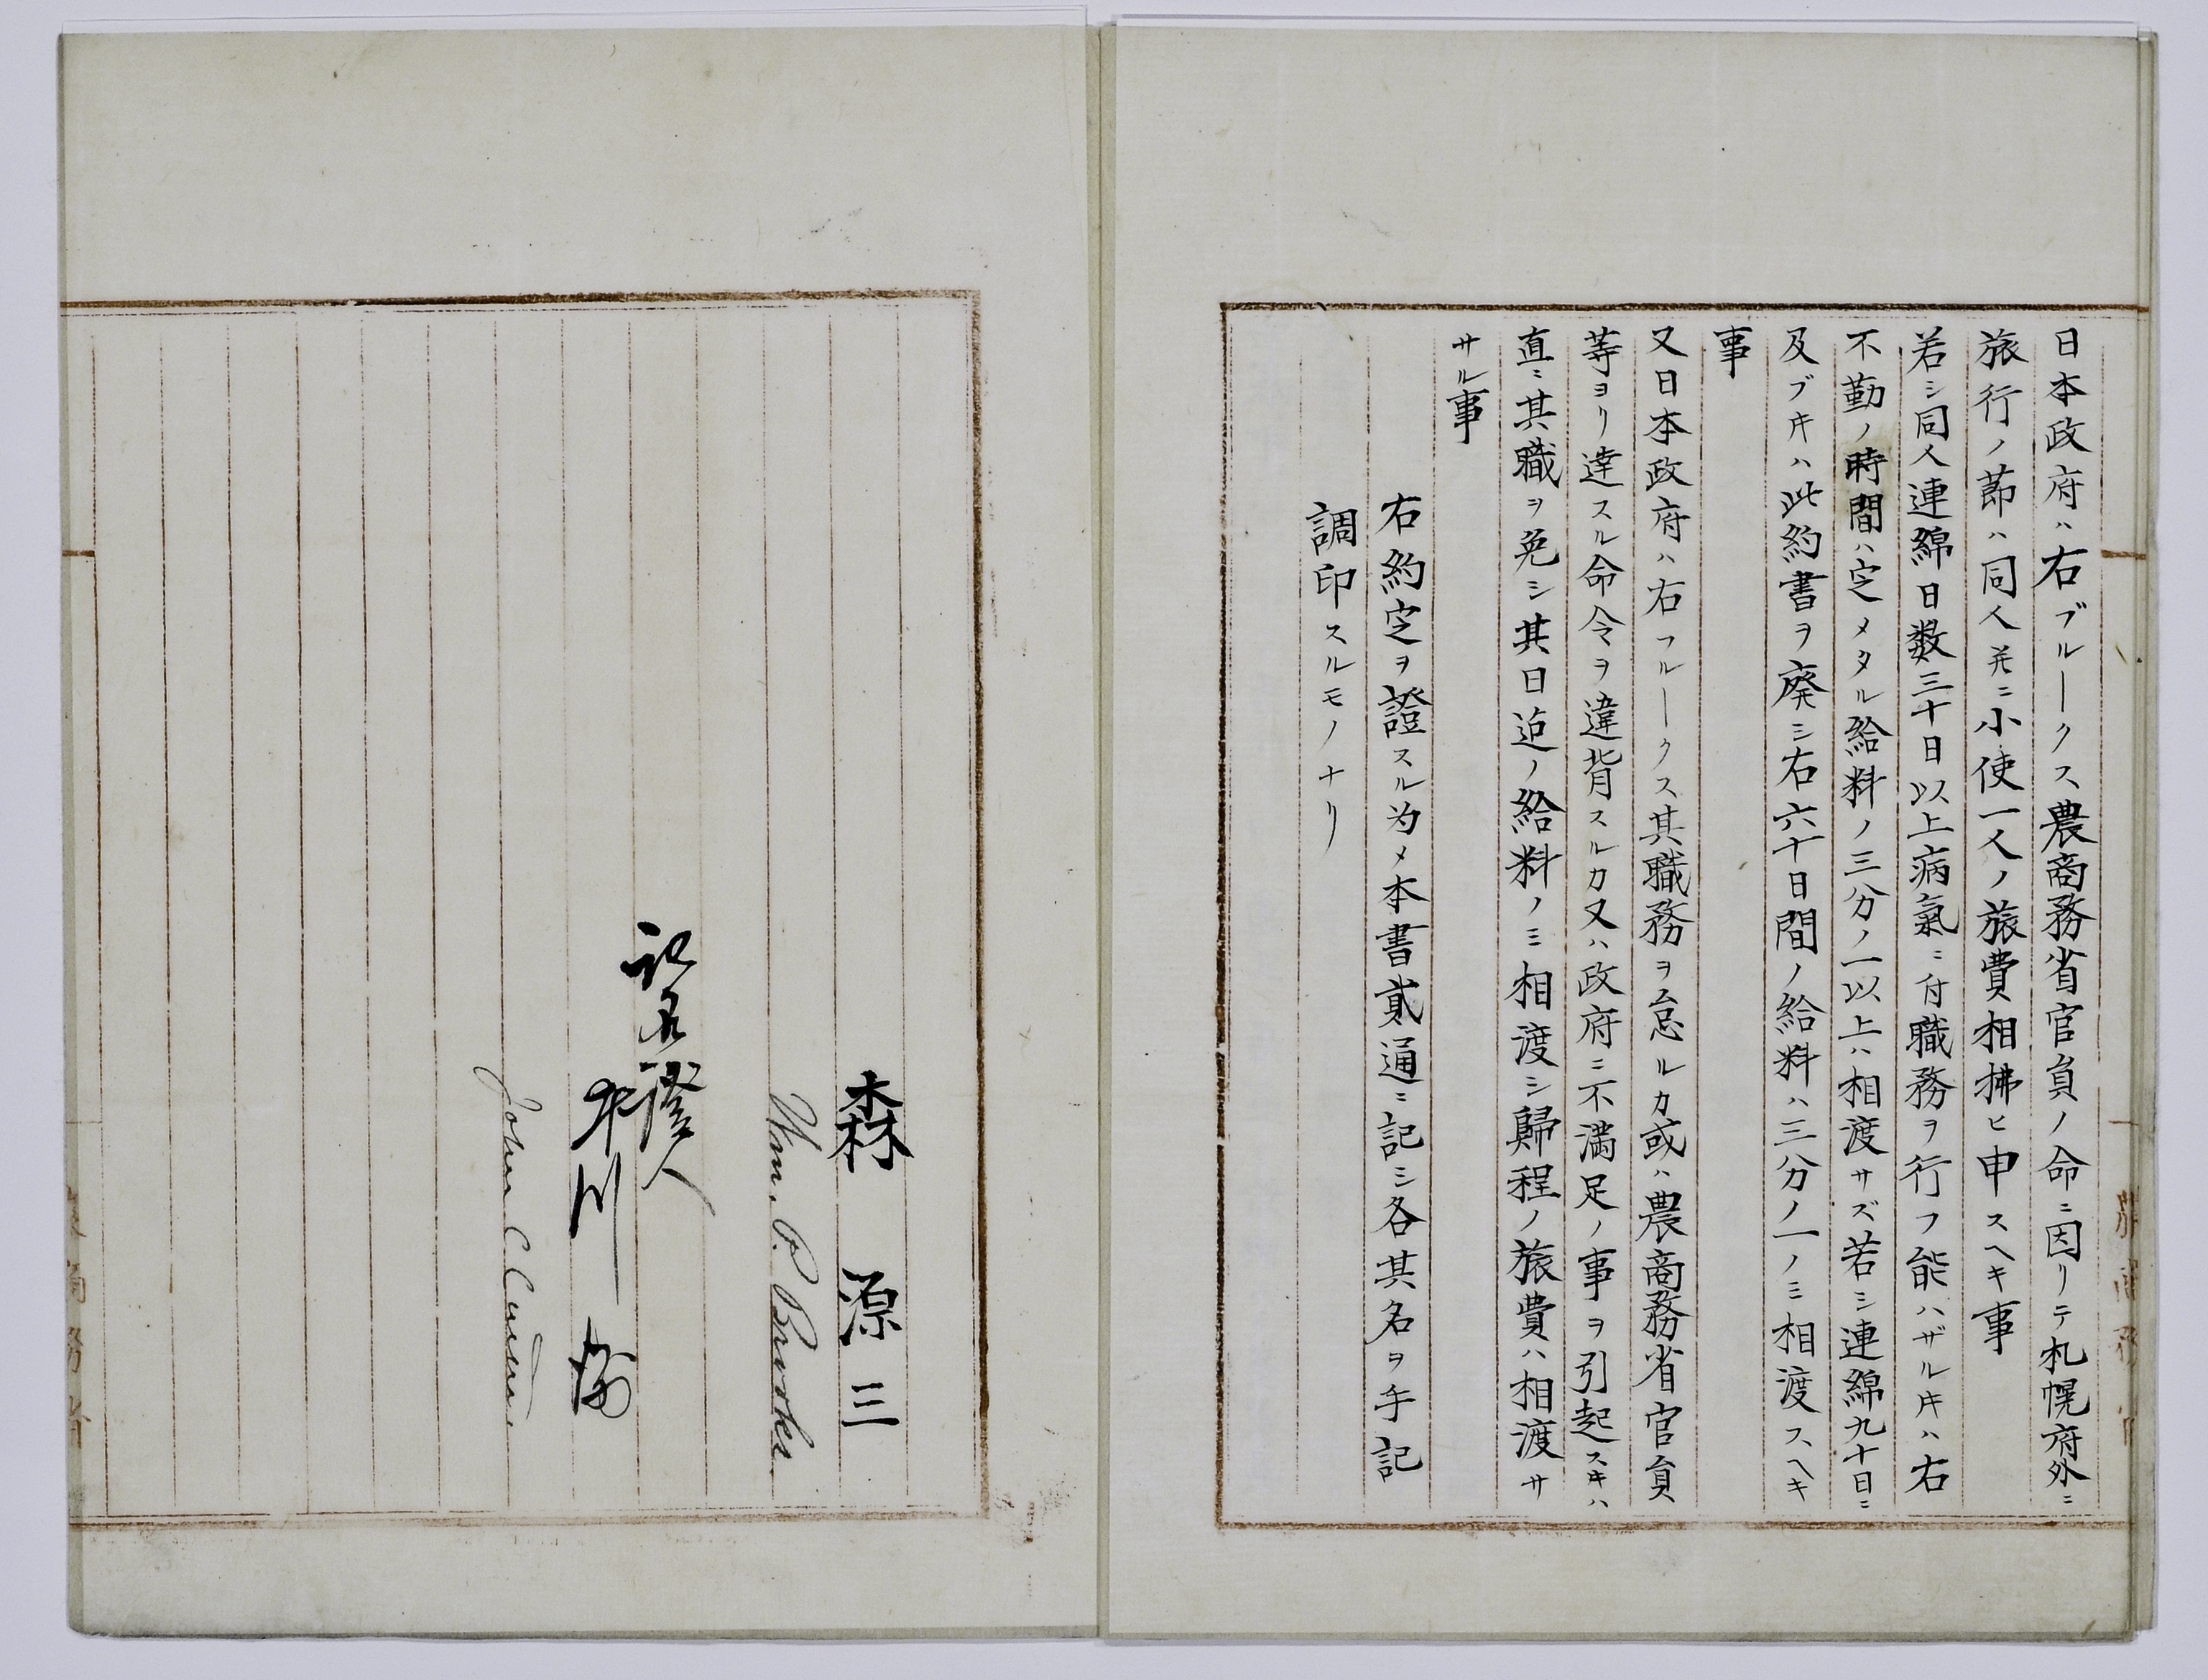 日本政府ハ右ブルークス農商務省官員ノ命ニ因リテ札幌府外ニ
旅行ノ節ハ同人并ニ小使一人ノ旅費相拂ヒ申スヘキ事
若シ同人連綿日数三十日以上病氣ニ付職務ヲ行フ能ハザル𪜈ハ右
不勤ノ時間ハ定メタル給料ノ三分ノ一以上ハ相渡サズ若シ連綿九十日ニ
及ブ𪜈ハ此約書ヲ廃シ右六十日間ノ給料ハ三分ノ一ノミ相渡スヘキ
事
又日本政府ハ右フルークス其職務ヲ怠ルカ或ハ農商務省官員
等ヨリ達スル命令ヲ違背スルカ又ハ政府ニ不満足ノ事ヲ引起スキハ
直ニ其職ヲ免シ其日迄ノ給料ノミ相渡シ歸程ノ旅費ハ相渡サ
サル事
右約定ヲ證スル为メ本書貳通ニ記シ各其名ヲ手記
調印スルモノナリ
農商務省
森源三
Wm. P. Brooks
記名證人
John C. Cutter
農商務省